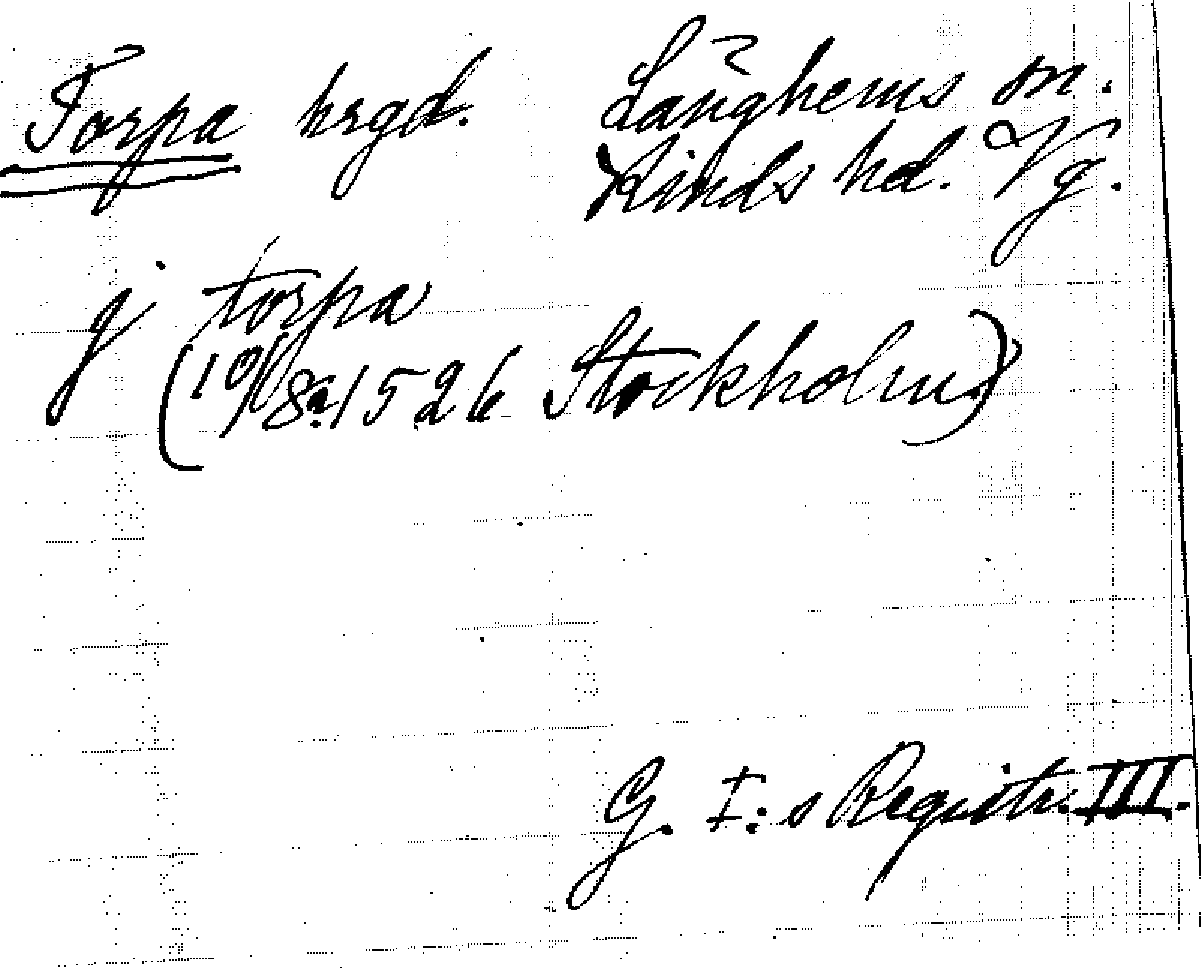 Torpa hrgd. Långhems sn.
Kinds hd. Vg.
j torpa
(10/8 1526 Stockholm)
G. I:s Registr. III.